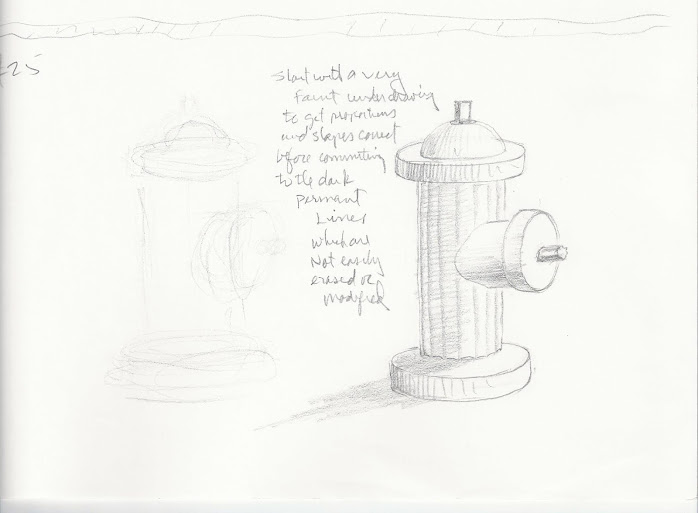 25
Start with a very
faint underdrawing
to get proportions
and shapes correct
before committing
to the dark
permant
Lines
which are
Not easily
erased or
modified